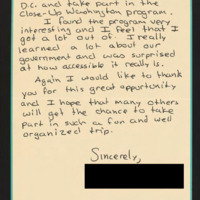 D.C. and take part in the
Close-Up Washington program.
I found the program very
interesting and I feel that I
got a lot out of. I really
learned a lot about our
government and was surprised
at how accessible it really is.
Again I would like to thank
you for this great opportunity
and I hope that many others
will get the chance to take
part in such a fun and well
organized trip.
Sincerely,